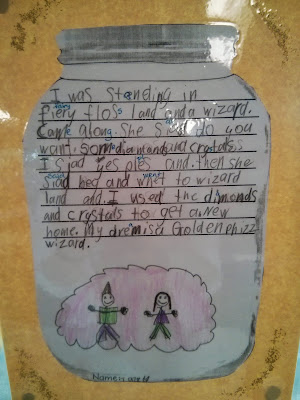 I was standing in
fairy
Fiery floss land and a wizard.
Came along. She siad do you
want som diamonds and crystals
I siad yes ples and. then she
said went
siad hed and whet to wizard
land and I used the dimonds
and crystals to get a new
home. My dremis a Golden phizz
wizard.
Name: